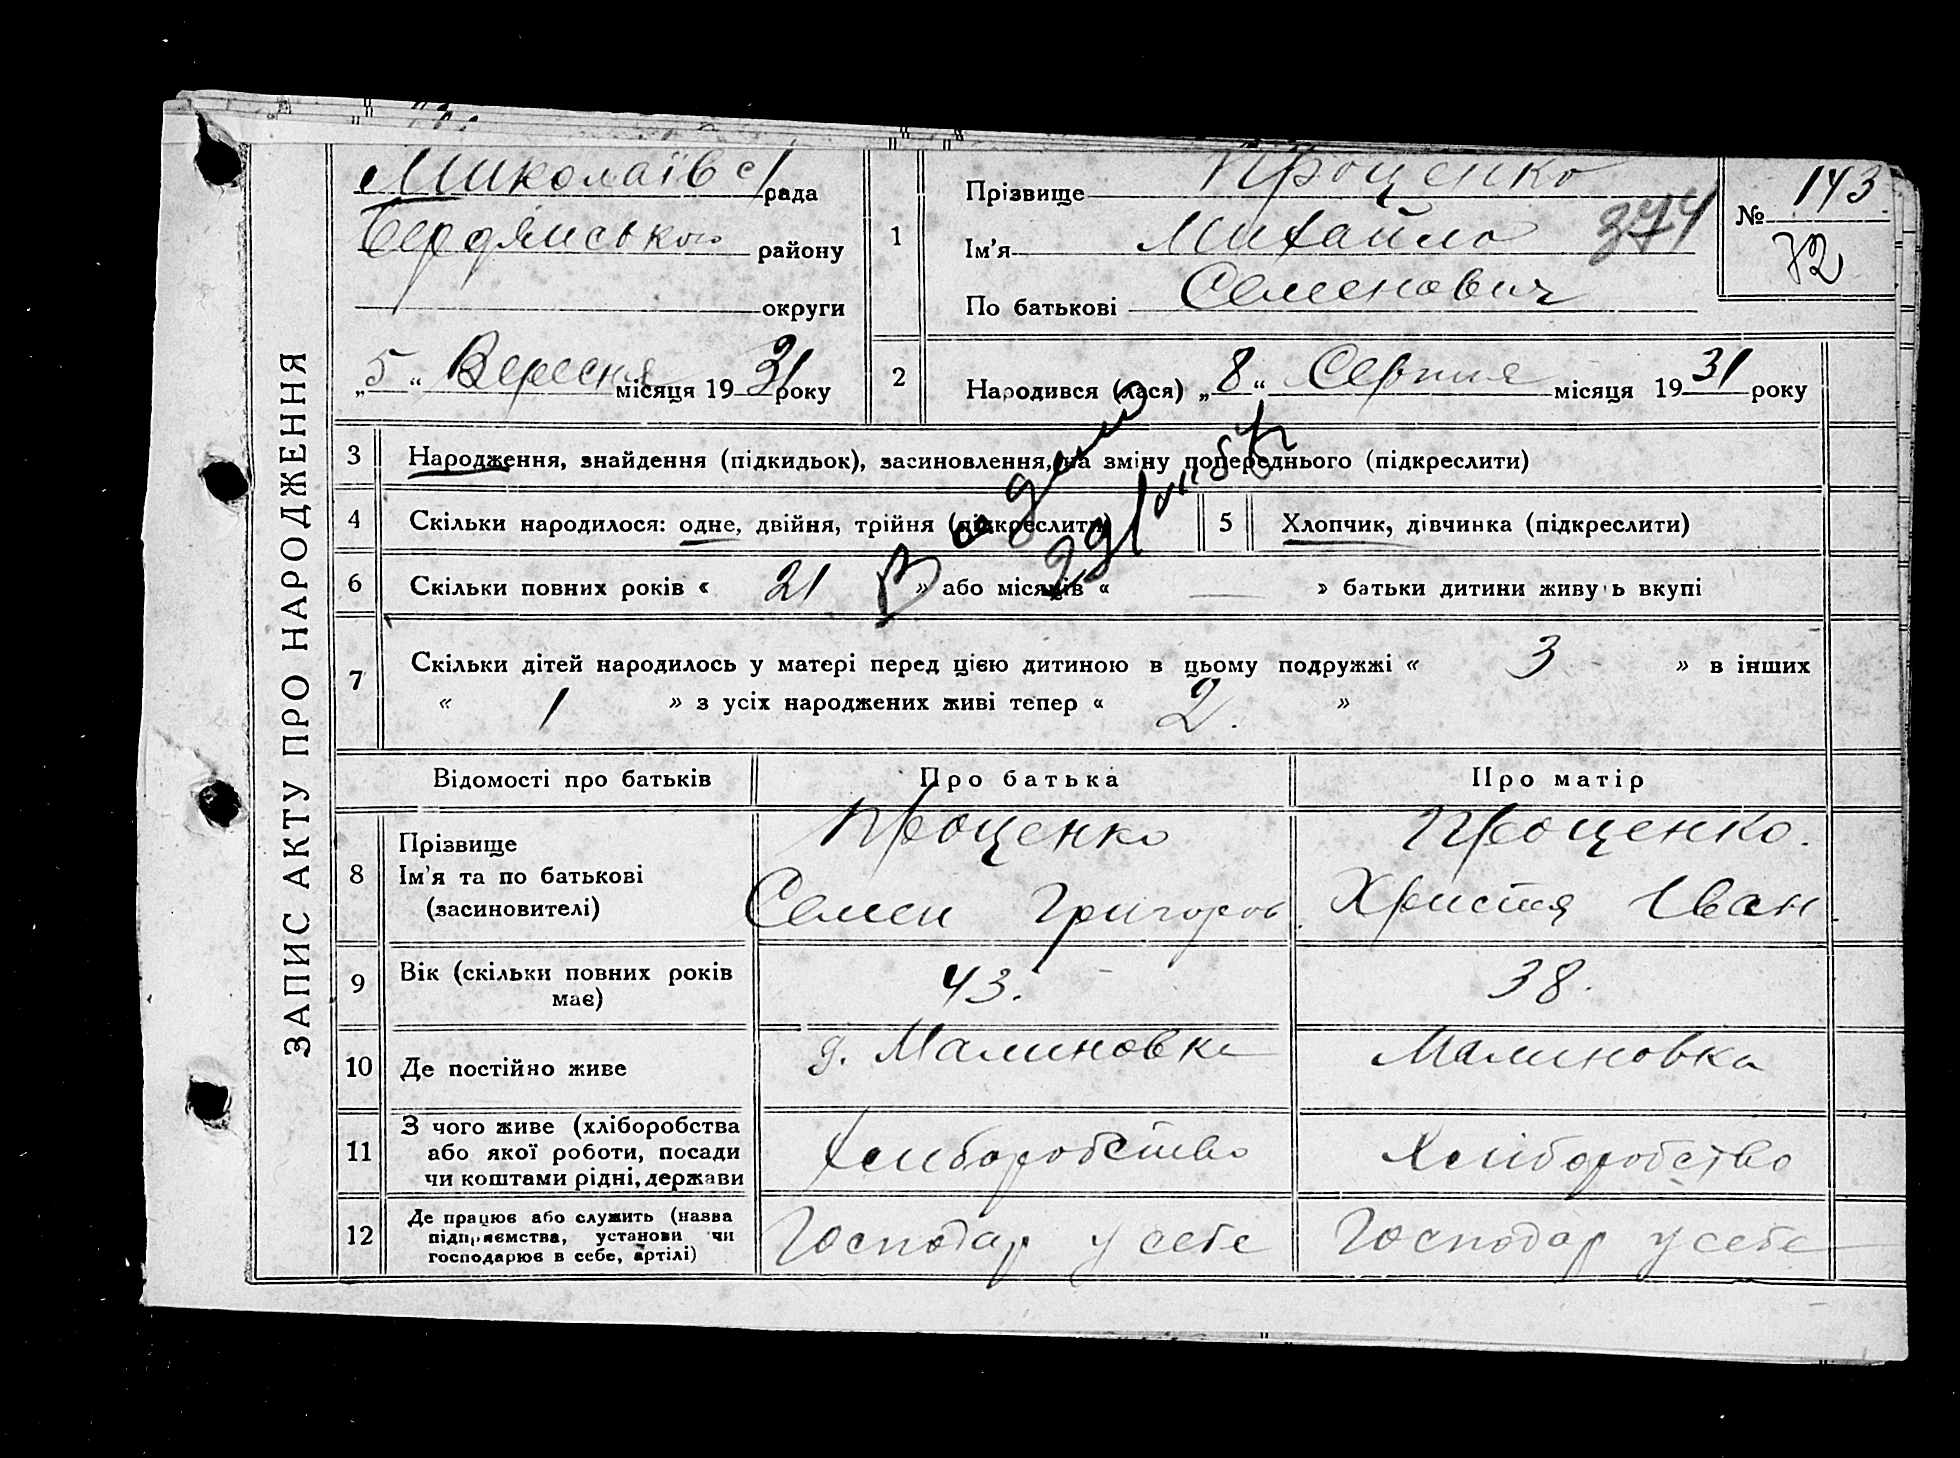 ЗАПИС АКТУ ПРО НАРОДЖЕННЯ
Миколаївс рада
Бердянського району
округи
„5“ Вересня місяця 1931 року
1
Прізвище Проценко
Ім'я Михайло 374
По батькові Семенович
№ 143
72
2
Народився (лася) „8“ Серпня місяця 1931 року
3 Народження, знайдення (підкидьок), засиновлення, на зміну попереднього (підкреслити)
4 Скільки народилося: одне, двійня, трійня (підкреслити)
5 Хлопчик, дівчинка (підкреслити)
6 Скільки повних років « 21 » або місяців « — » батьки дитини живуть вкупі
7 Скільки дітей народилось у матері перед цією дитиною в цьому подружжі « 3 » в інших
« 1 » з усіх народжених живі тепер « 2. »
Відомості про батьків Про батька Про матір
8 Прізвище
Ім'я та по батькові
(засиновителі)
Проценко
Семен Григоров
Проценко.
Христя Іван.
9 Вік (скільки повних років
має)
43.
38.
10 Де постійно живе
д. Малиновка
Малиновка
11 З чого живе (хліборобства
або якої роботи, посади
чи коштами рідні, держави
Хліборобство
Хліборобство
12 Де працює або служить (назва
підприємства, установи чи
господарює в себе, артілі)
Господар у себе
Господар у себе